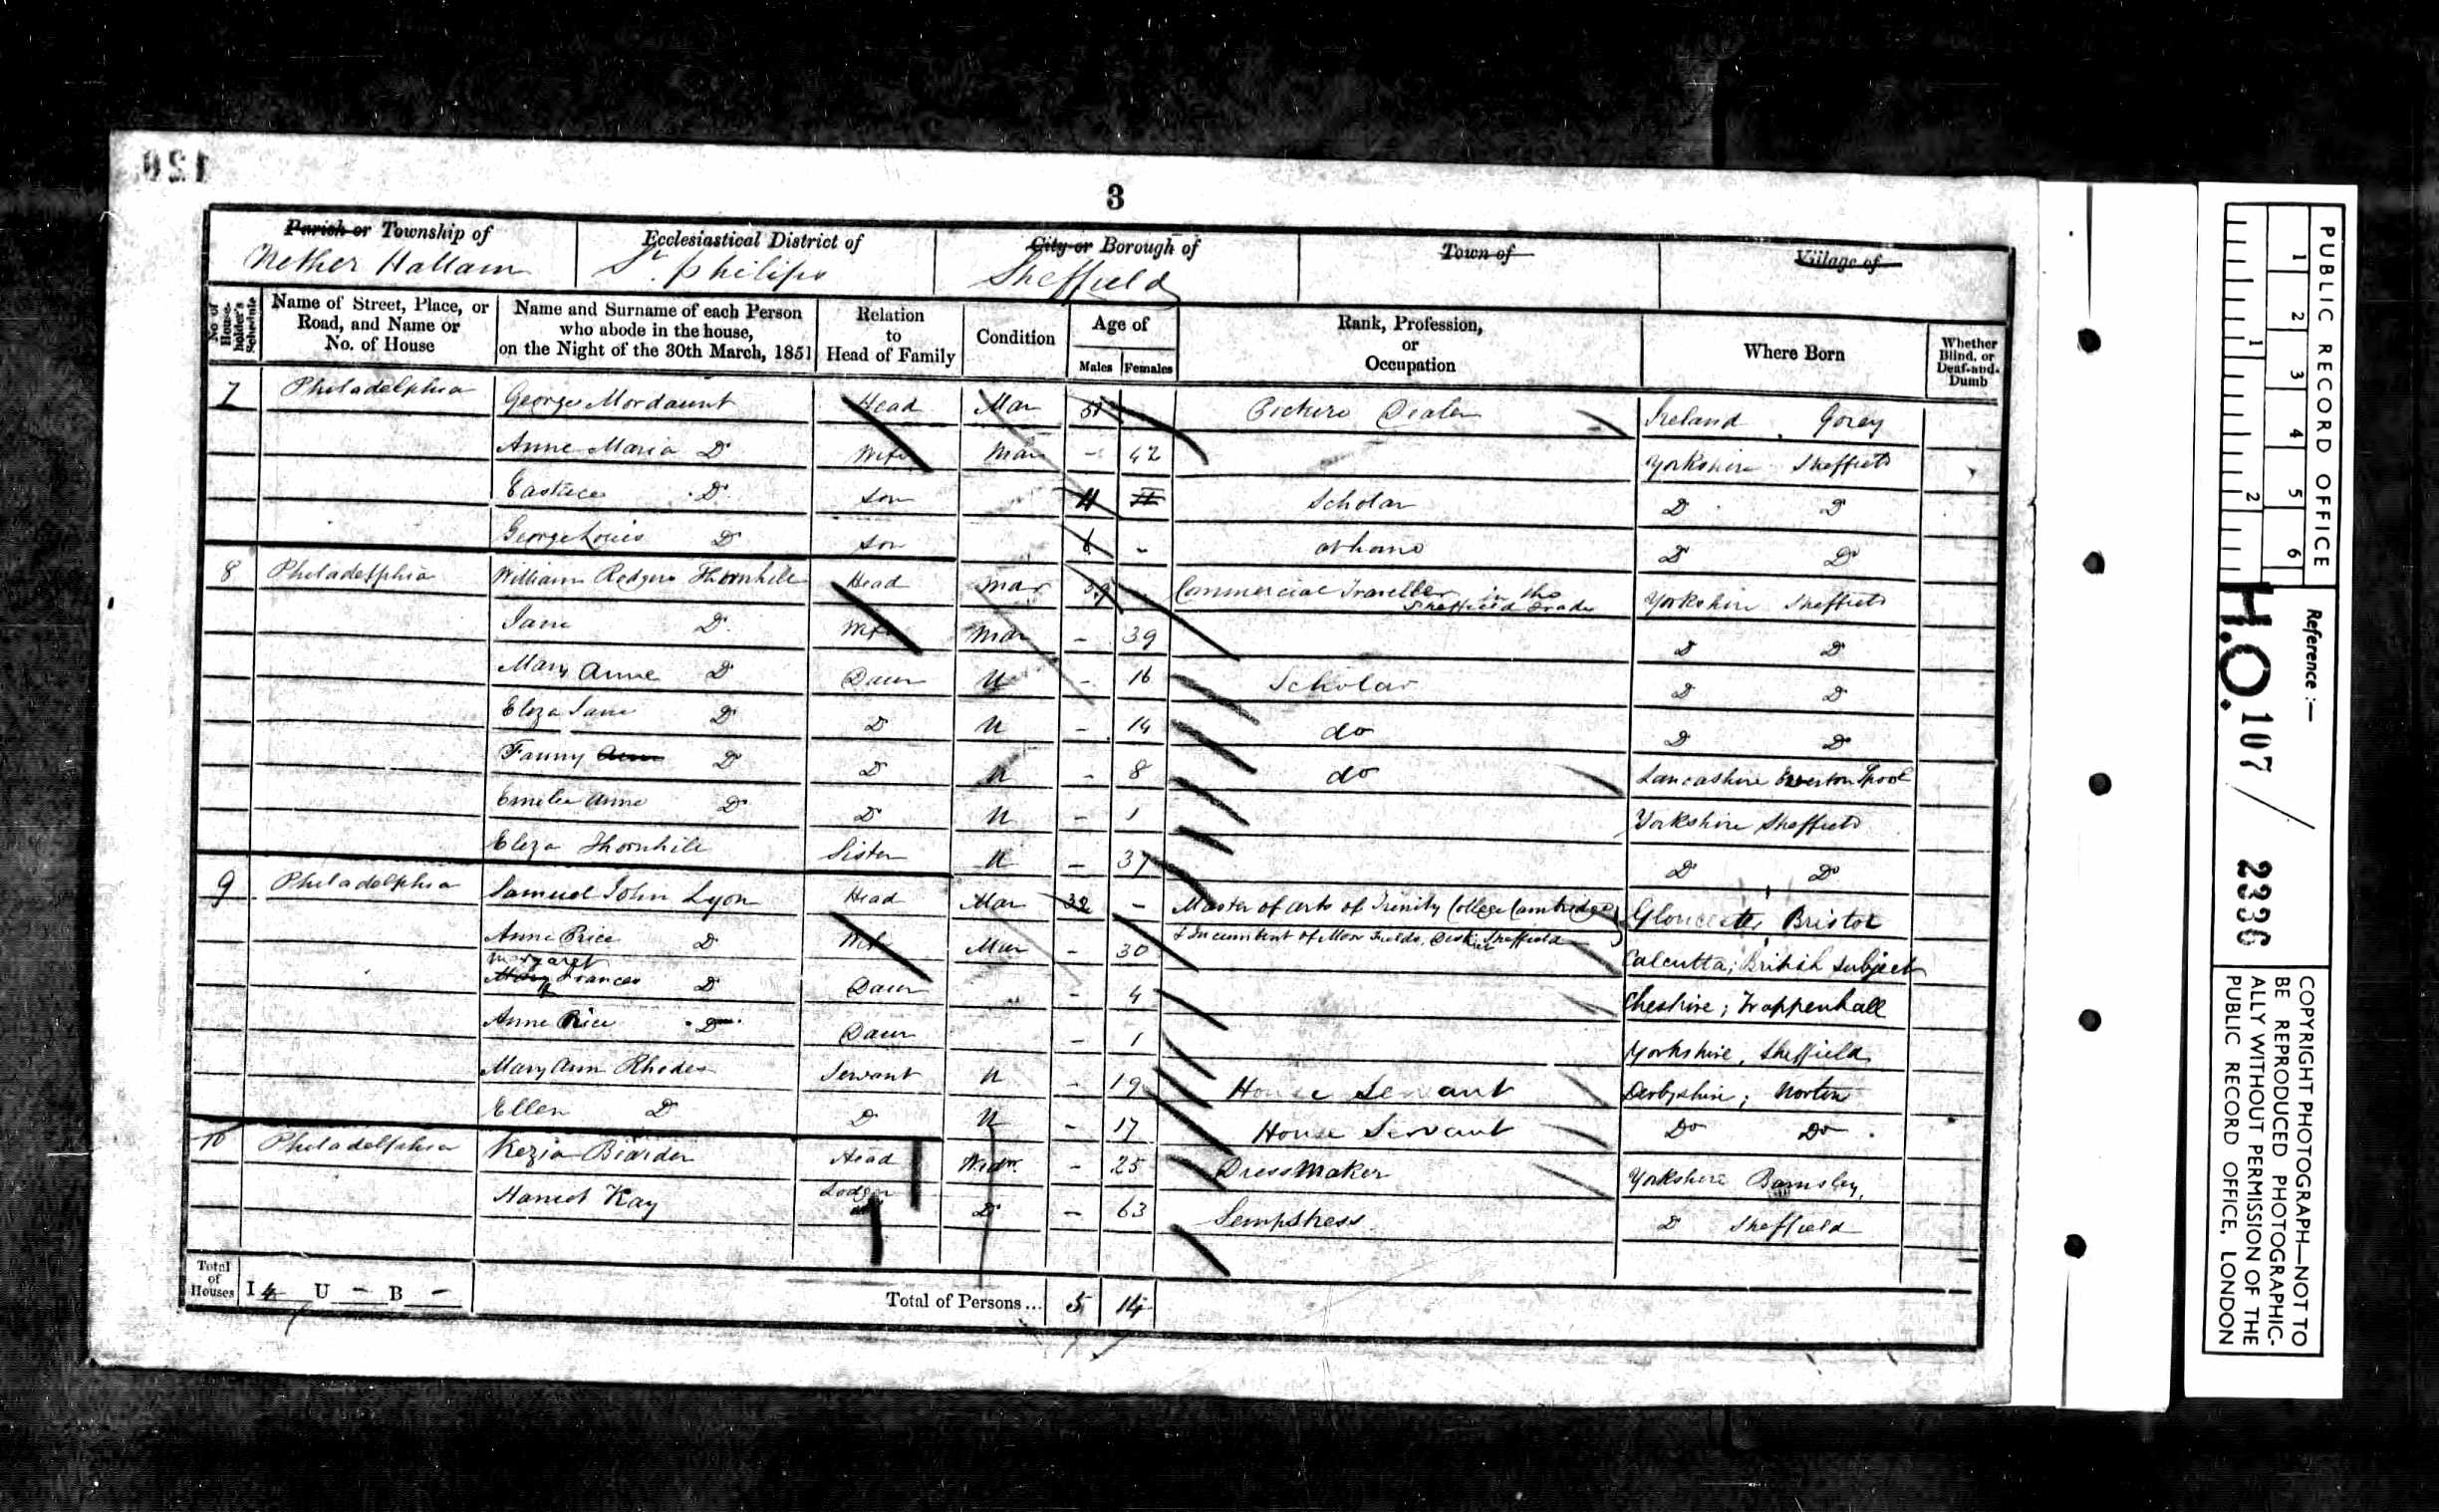 120
3
Parish or Township of
Nether Hallam
Ecclesiastical District of
St. Philips
City or Borough of
Sheffield
Town of
Village of
No. of House-holder's Schedule
Name of Street, Place, or Road, and Name or No. of House
Name and Surname of each Person who abode in the house, on the Night of the 30th March, 1851
Relation to Head of Family
Condition
Age of
Males Females
Rank, Profession, or Occupation
Where Born
Whether Blind, or Deaf-and-Dumb
7 Philadelphia George Mordaunt Head Mar 51 Picture Dealer Ireland Gorey
Anne Maria Do Wife Mar - 42 Yorkshire Sheffield
Do Son 11 11 Scholar Do Do
George Louis Do Son 6 - at home Do Do
8 Philadelphia William Rodgers Thornhill Head Mar 39 - Commercial Traveller in the Sheffield Trade Yorkshire Sheffield
Jane Do Wife Mar - 39 Do Do
Mary Anne Do Daur U - 16 Scholar Do Do
Eliza Jane Do Do U - 14 do Do Do
Fanny Ann Do Do U - 8 do Lancashire Everton Lpool
Emilie Anne Do Do U - 1 Yorkshire Sheffield
Eliza Thornhill Sister U - 37 Do Do
9 Philadelphia Samuel John Lyon Head Mar 32 - Master of Arts of Trinity College Cambridge Gloucester, Bristol
& Incumbent of Moor Fields, Sheffield
Anne Price Do Wife Mar - 30 Calcutta; British Subject
Margaret
Mary Frances Do Daur - 4 Cheshire; Grappenhall
Anne Price Do Daur - 1 Yorkshire, Sheffield
Mary Ann Rhodes Servant U - 19 House Servant Derbyshire; Norton
Ellen Do Do U - 17 House Servant Do Do
10 Philadelphia Kezia Head Widw - 25 Dress Maker Yorkshire Barnsley
Harriet Kay Lodger Do - 63 Sempstress Do Sheffield
Total of Houses I 4 U - B -
Total of Persons... 5 14
PUBLIC RECORD OFFICE
1 2 3 4 5 6
1 2
Reference :-
H.O. 107 / 2336
COPYRIGHT PHOTOGRAPH—NOT TO
BE REPRODUCED PHOTOGRAPHIC-
ALLY WITHOUT PERMISSION OF THE
PUBLIC RECORD OFFICE, LONDON